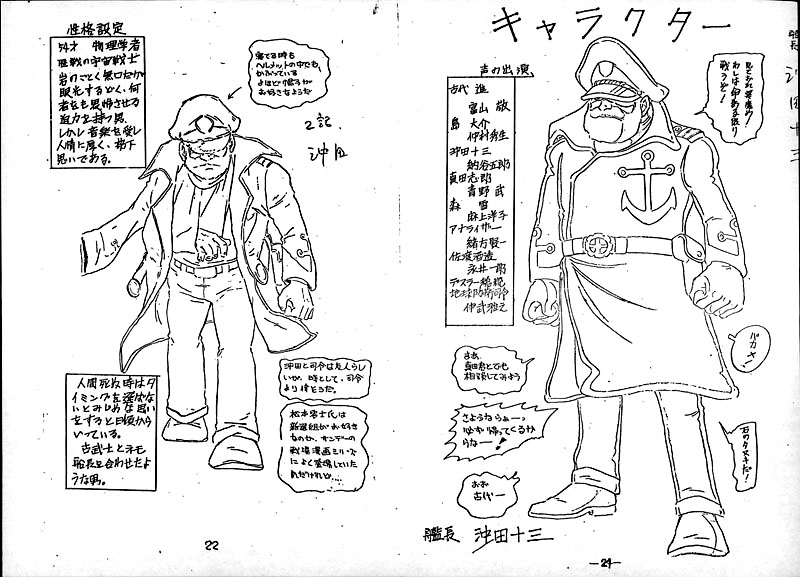 性格設定
54才 物理学者
歴戦の宇宙戦士
岩のごとく無口だが
眼光するどく、何
者をも畏怖させる
迫力を持つ男。
しかし音楽を愛し
人情に厚く、部下
思いである。
寝てる時も
ヘルメットの中でも、
かぶっている
よほど帽子が
お好きなようだ
2記.
沖田
人間死ぬ時はタ
イミングを選ばな
いとみじめな思い
をすると日頃から
いっている。
古武士とネモ
船長を合わせたよ
うな男。
沖田と司令は友人らし
いが、時として、司令
より偉そうだ。
松本零士氏は
新選組がお好き
なのか、サンデーの
戦場漫画シリーズ
によく登場していた
22
キャラクター
声の出演
古代 進
富山 敬
島 大介
仲村秀生
沖田十三
納谷五郎
真田志郎
青野 武
森 雪
麻上洋子
アナライザー
緒方賢一
佐渡酒造
永井一郎
デスラー総統
地球防衛司令
伊武雅之
戦うぞ!
バカメ!
まあ、
真田君とでも
相談してみよう
さようならぁーっ
必ず帰ってくるか
らなー!
おお
古代ー
艦長 沖田十三
-24-
艦長
沖田十三